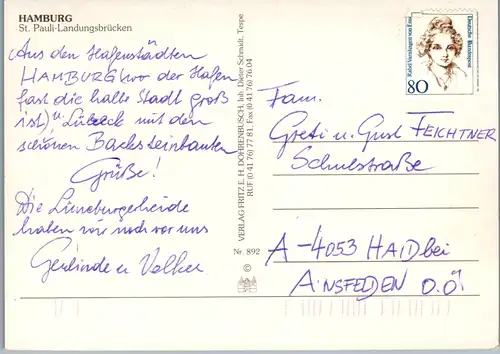 HAMBURG
St. Pauli-Landungsbrücken
Aus den Hafenstädten
HAMBURG (wo der Hafen
fast die halbe Stadt groß
ist) u. Lübeck mit den
schönen Backsteinbauten
Grüße!
Die Lüneburgerheide
haben wir noch vor uns
Gerlinde u Volker
VERLAG FRITZ E. H. DOHRENBUSCH, Inh. Dieter Schmidt, Tespe
RUF (0 41 76) 77 81, Fax (0 41 76) 76 04
Nr. 892
©
Rahel Varnhagen von Ense
Deutsche Bundespost
80
Fam.
Greti u. Gust FEICHTNER
Schulstraße
A-4053 HAID bei
ANSFELDEN O.Ö